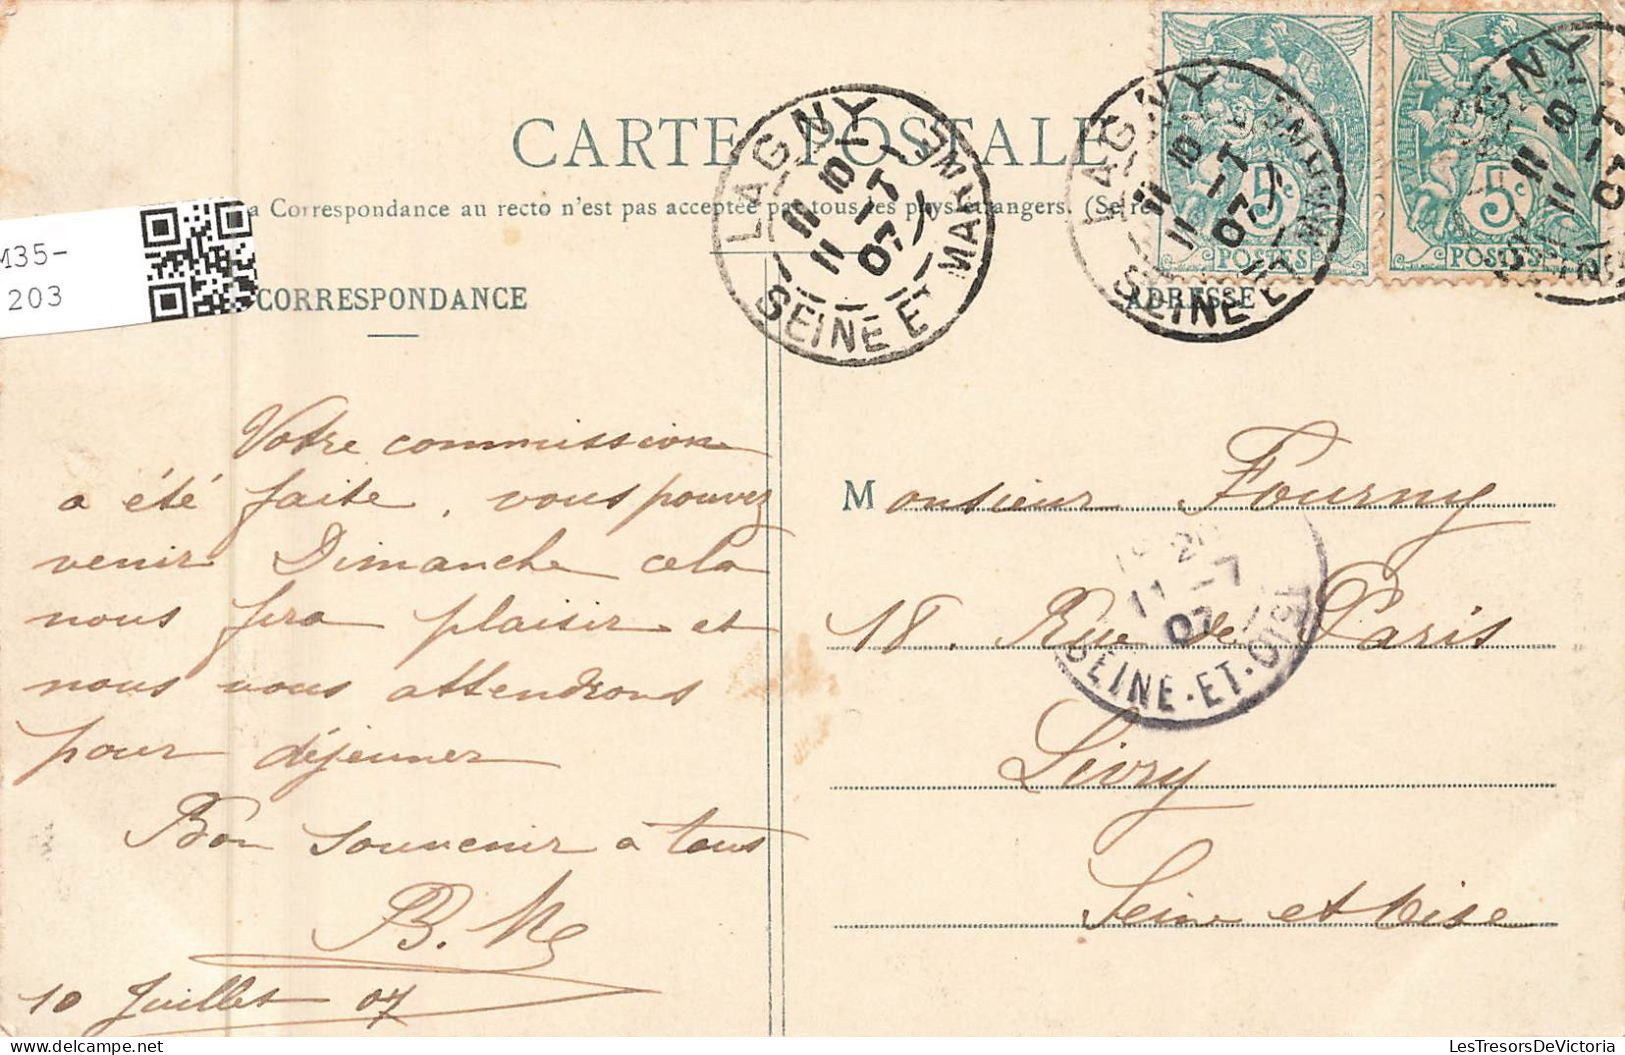 CARTE POSTALE
a Correspondance au recto n'est pas acceptée par tous les pays étrangers. (Se
M35-
203
CORRESPONDANCE
ADRESSE
LAGNY
11 10
11 - 7
07
SEINE ET MARNE
LAGNY
11 10
11 - 7
07
SEINE ET MARNE
5c
POSTES
5c
POSTES
Votre commission
a été faite, vous pouvez
venir Dimanche cela
nous fera plaisir et
nous vous attendrons
pour déjeuner
Bon souvenir à tous
10 Juillet 07
Monsieur Fourny
18. Rue de Paris
Livry
Seine et Oise
11 - 7
07
SEINE-ET-OISE
LesTresorsDeVictoria